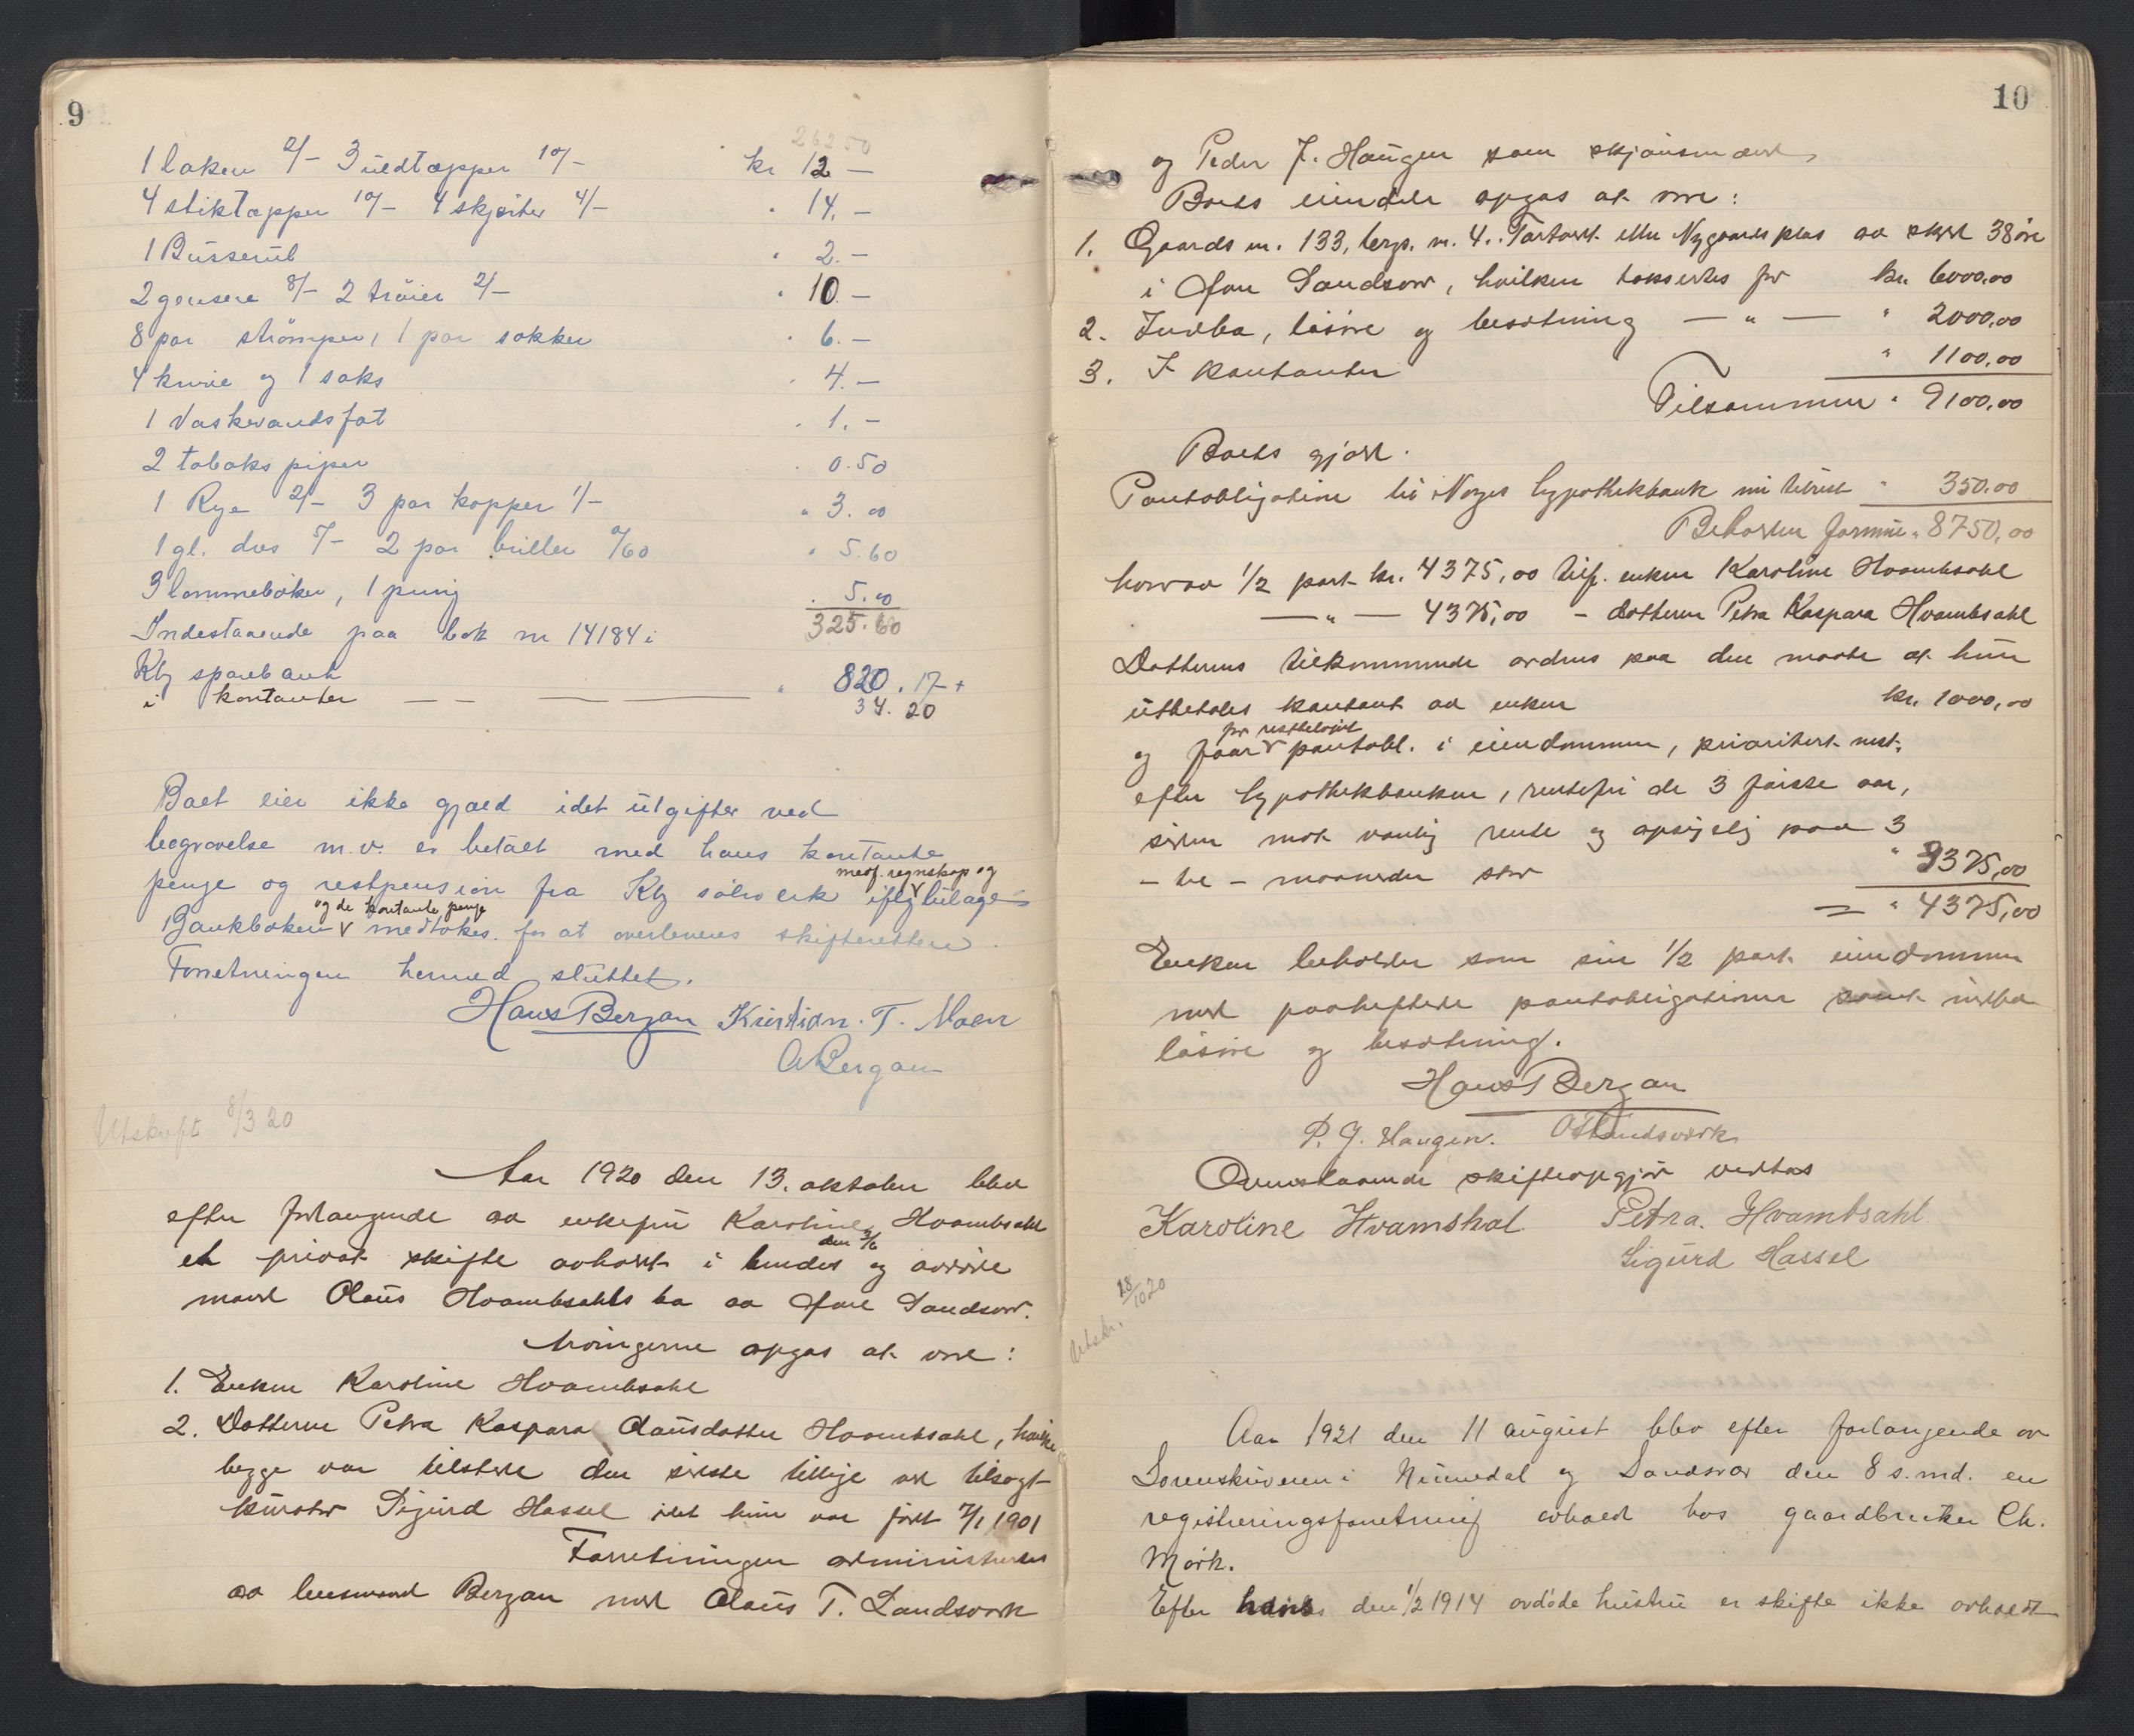 9
262 50
1 laken 2/- 3 uldtepper 10/- kr 12 –
4 stiktepper 10/- 4 skjorter 4/- " 14. –
1 Busserul " 2. –
2 gensere 8/- 2 tröier 2/- " 10 –
8 par strömper, 1 par sokker " 6. –
4 knive og 1 saks " 4. –
1 Vaskevandsfat " 1. –
2 tobaks piper " 0.50
1 Rye 2/- 3 par kopper 1/- " 3.00
1 gl. 5/- 2 par briller 0/60 " 5.60
3 lommeböker, 1 pung " 5.00
325.60
Indestaaende paa bok nr 14184 i
Kbg sparebank " 820.17 +
i kontanter — — — 34.20
Boet eier ikke gjæld idet utgifter ved
begravelse m.v. er betalt med hans kontante
penge og restpension fra Kbg sölvverk iflg medf. regnskap og bilage
Bankboken og de kontante penge medtokes for at overleveres skifteretten.
Forretningen hermed sluttet.
Hans Bergan Kristian. T. Moen
A Bergan
Utskrift 8/3 20
Aar 1920 den 13. oktober blev
efter forlangende av enkefru Karoline Hvambsahl
et privat skifte avholdt i hendes og den 3/6 avdöde
mand Olaus Hvambsahls bo av Sandsvær.
Arvingerne opgas at være:
1. Enken Karoline Hvambsahl
2. Datteren Petra Kaspara Olausdatter Hvambsahl, hvilke
begge var tilstede den sidste tillige ved tilsagt
kurator Sigurd Hassel idet hun var født 7/1 1901
Forretningen administreres
av lensmand Bergan med Olaus T. Landsverk
10
og Peder J. Haugen som skjönsmænd
Boets eiendele opgas at være:
1. Gaards nr. 133, brgs. nr. 4. eller Nygaardsplas av skyld 38 øre
i Sandsvær, hvilken takseres for kr. 6000,00
2. Indbo, lösöre og besætning — " — " 2000,00
3. I kontanter " 1100,00
Tilsammen " 9100,00
Boets gjæld.
Pantobligation til Norges hypothekbank nu tilrest " 350.00
Beholden formue " 8750,00
hvorav 1/2 part kr. 4375,00 tilf. enken Karoline Hvambsahl
— " — 4375,00 – datteren Petra Kaspara Hvambsahl
Datterens tilkommende ordnes paa den maate at hun
utbetales kontant av enken kr. 1000,00
og faar for restbelöpet pantobl. i eiendommen, prioritert næst
efter hypothekbanken, rentefri de 3 första aar,
siden mot vanlig rente og opsigelig paa 3
– tre – maaneder stor " 3375,00
= " 4375,00
Enken beholder som sin 1/2 part eiendommen
med paaheftede pantobligationer samt indbo
lösöre og besætning.
Hans Bergan
P. J. Haugen. O T Landsverk
Ovenstaaende skifteopgjör vedtas
Karoline Hvamshal Petra. Hvambsahl
Sigurd Hassel
Utskr. 28/10 20
Aar 1921 den 11 august blev efter forlangende av
Sorenskriveren i Numedal og Sandsvær den 8 s.md. en
registreringsforretning avholdt hos gaardbruker Ch.
Mörk.
Efter hans den 1/2 1914 avdöde hustru er skifte ikke avholdt